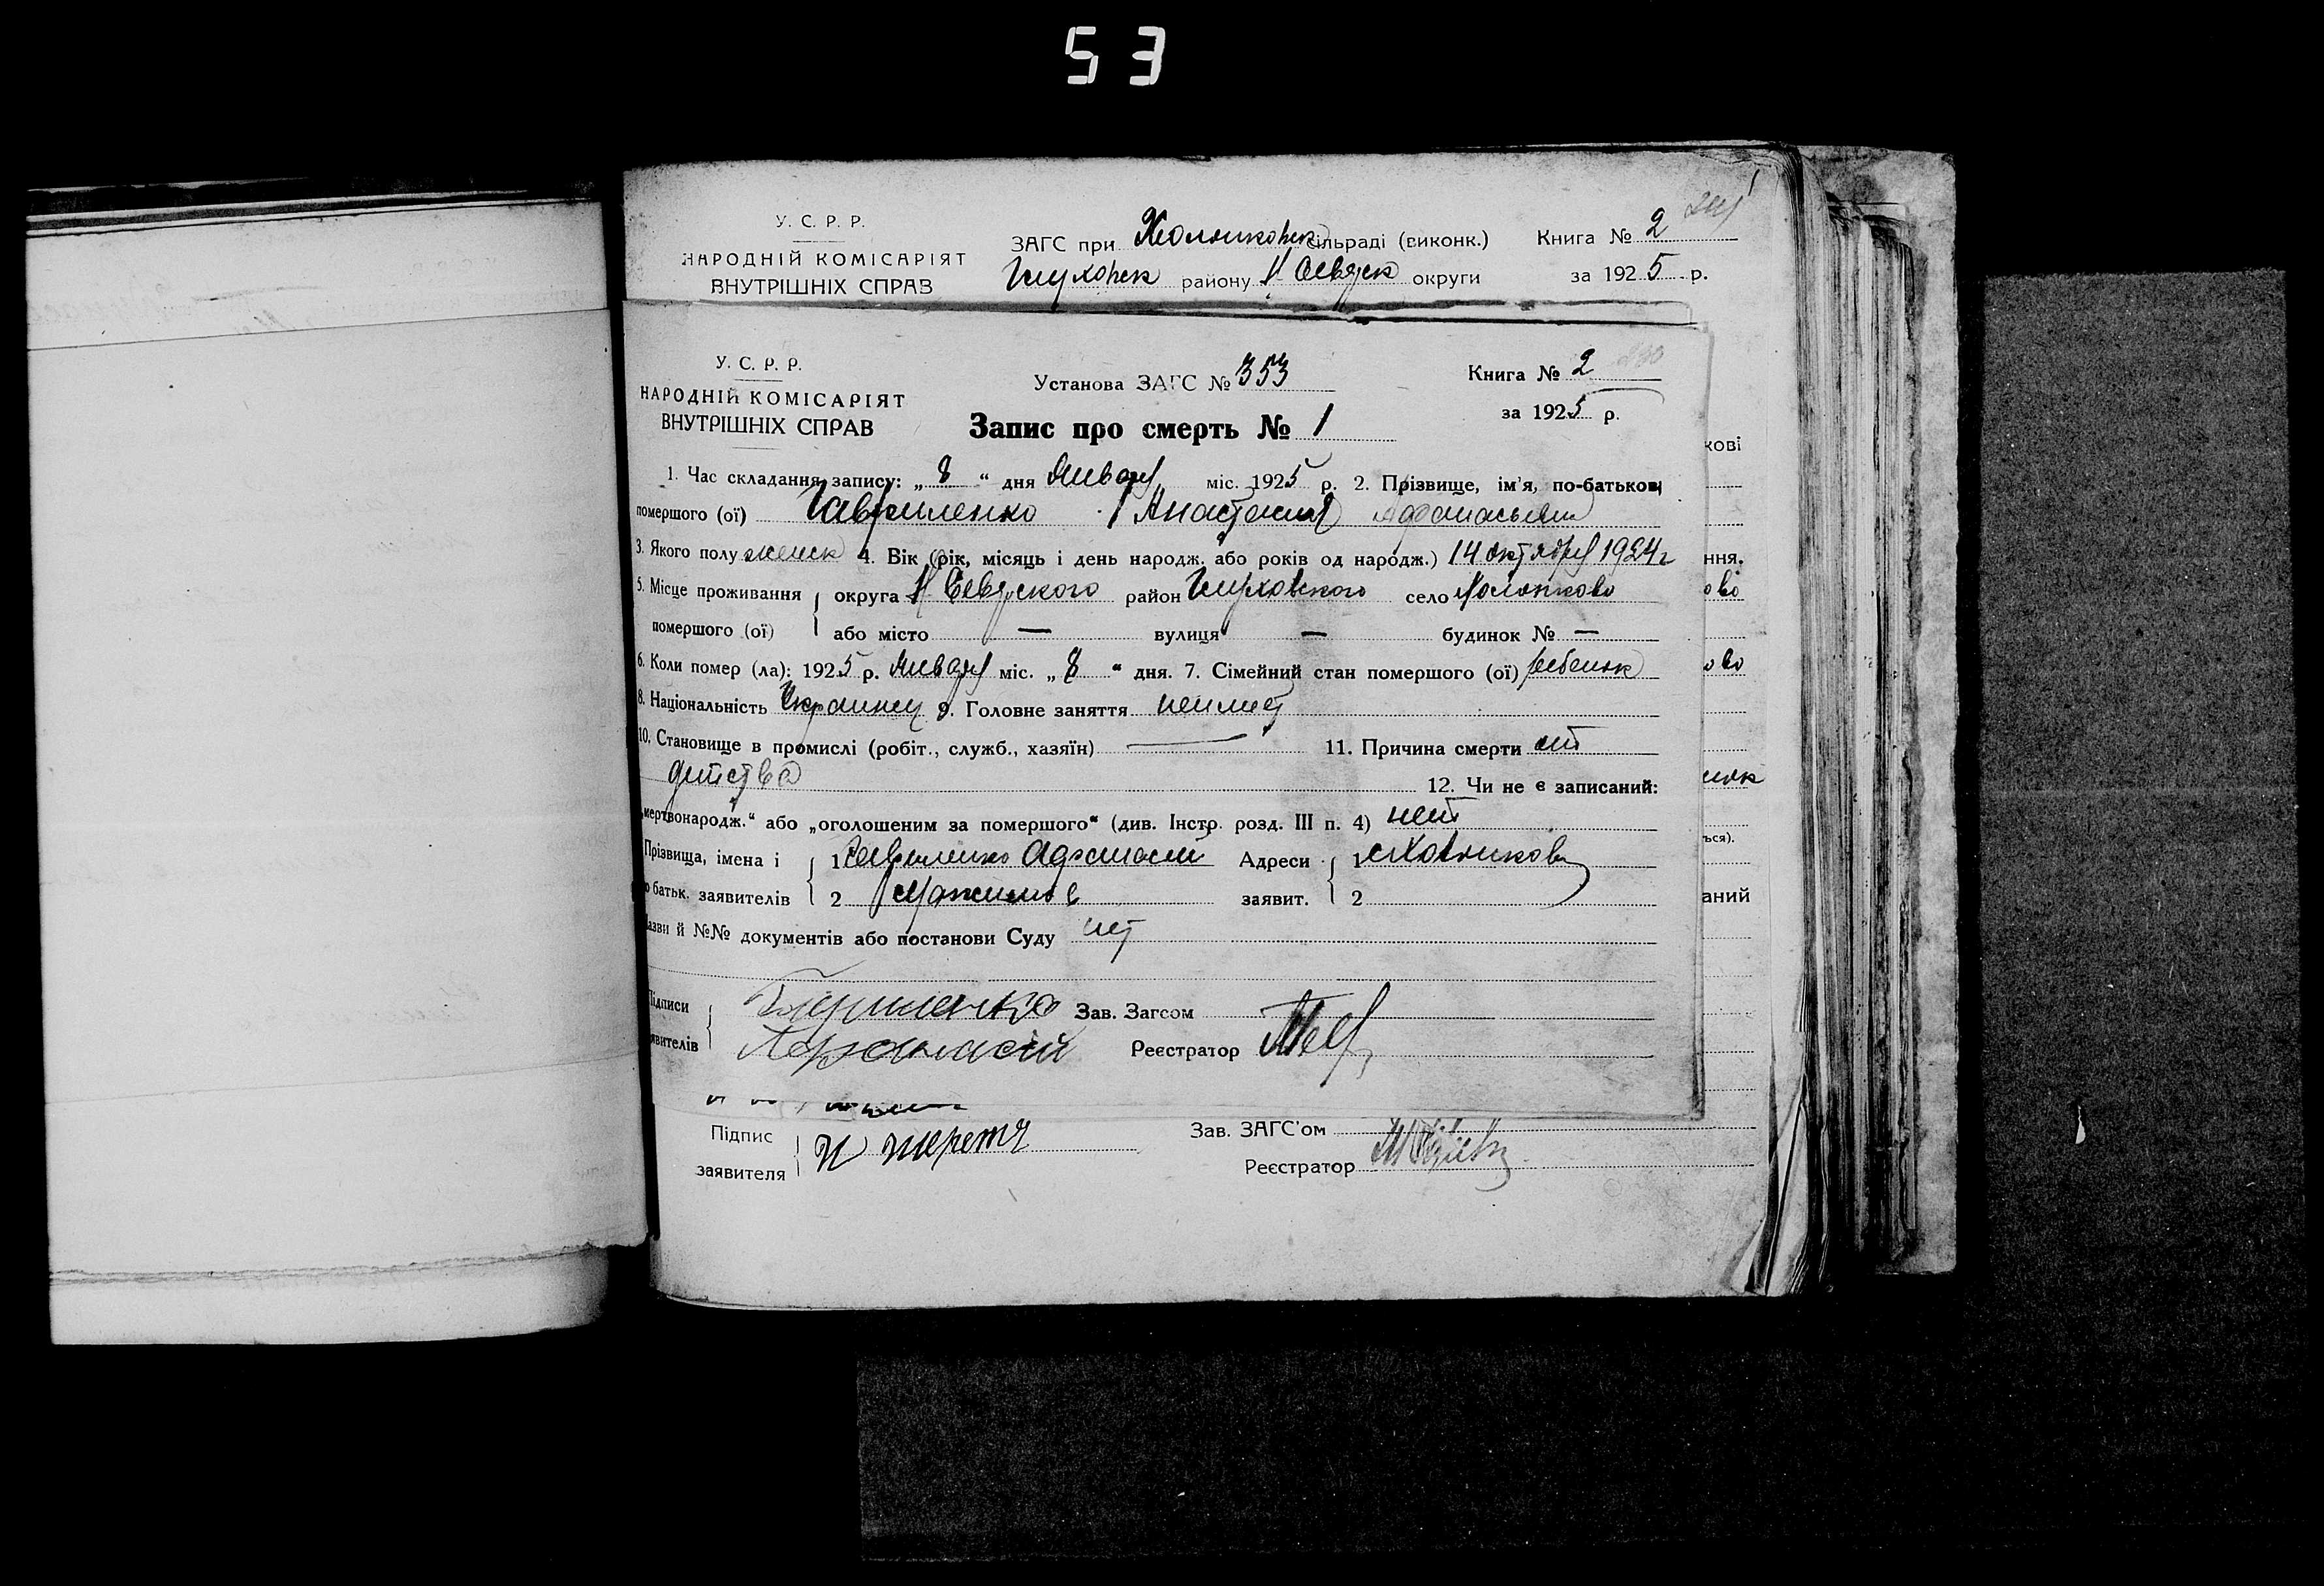 53
У. С. Р. Р.
НАРОДНІЙ КОМІСАРІЯТ
ВНУТРІШНІХ СПРАВ
ЗАГС при сільраді (виконк.) Книга № 2
району округи за 1925 р.
У. С. Р. Р.
НАРОДНІЙ КОМІСАРІЯТ
ВНУТРІШНІХ СПРАВ
Установа ЗАГС № 353 Книга № 2
Запис про смерть № 1 за 1925 р.
1. Час складання запису: „ 8 “ дня Января міс. 1925 р. 2. Прізвище, ім'я, по-батькові
помершого (ої) Гавриленко Анастасия
3. Якого полу женск 4. Вік (рік, місяць і день народж. або років од народж.) 14 октября 1924 г
5. Місце проживання округа Н Севярского район Глуховского село
помершого (ої) або місто — вулиця — будинок № —
6. Коли помер (ла): 1925 р. Января міс. „ 8 “ дня. 7. Сімейний стан помершого (ої) ребенок
8. Національність Украинец 9. Головне заняття неимет
10. Становище в промислі (робіт., служб., хазяїн) — 11. Причина смерти от
детства 12. Чи не є записаний:
„мертвонародж.“ або „оголошеним за помершого“ (див. Інстр. розд. III п. 4) нет
Прізвища, імена і 1 Гавриленко Афанасий Адреси 1
батьк. заявителів 2 заявит. 2
азви й №№ документів або постанови Суду нет
Підписи Гавриленко Зав. Загсом
явителів Афанасий Реєстратор
Підпис Зав. ЗАГС'ом
заявителя Реєстратор
кові
ння.
ово
ово
ься).
аний